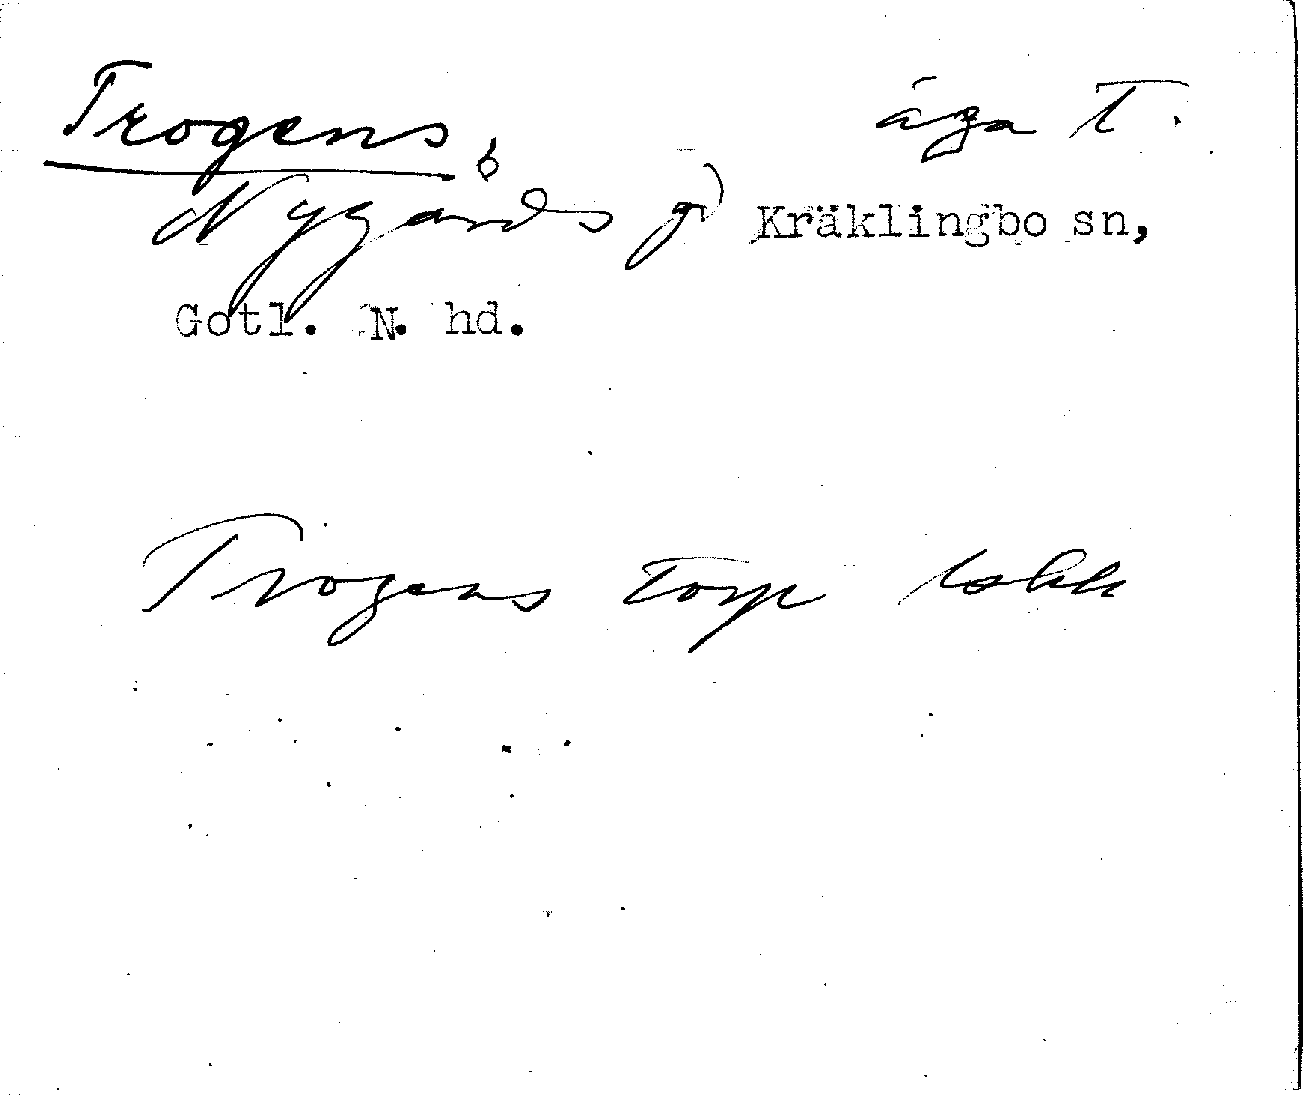 Trogens, åga T.
Nygårds gd Kräklingbo sn,
Gotl. N. hd.
Trogens torp